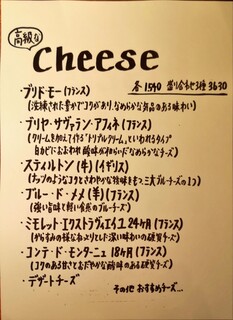 高級な
Cheese
各1540 盛り合わせ3種3630
・ブリドモー(フランス)
(洗練された豊かでコクがあり、なめらかな気品のある味わい)
・ブリヤ・サヴァラン・アフィネ(フランス)
(クリームを加えて作る"トリプルクリーム"といわれるタイプ
白カビにおおわれ酸味がやわらいだなめらかなチーズ)
・スティルトン(牛)(イギリス)
(ナッツのようなコクとさわやかな苦味をもつ三大ブルーチーズの1つ)
・ブルー・ド・メメ(羊)(フランス)
(強い旨味と軽い食感のブルーチーズ)
・ミモレット・エクストラヴィエイユ24ヶ月(フランス)
(からすみの様なねっとりとした深い味わいの硬質チーズ)
・コンテ・ド・モンターニュ18ヶ月(フランス)
(コクのある甘さとおだやかな酸味のある硬質チーズ)
・デザートチーズ
その他おすすめチーズ...